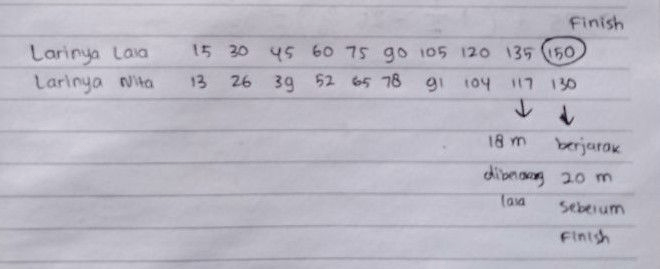 Finish
Larinya Lala 15 30 45 60 75 90 105 120 135 150
Larinya Nita 13 26 39 52 65 78 91 104 117 130
18 m berjarak
dibelakang 20 m
lala sebelum
Finish